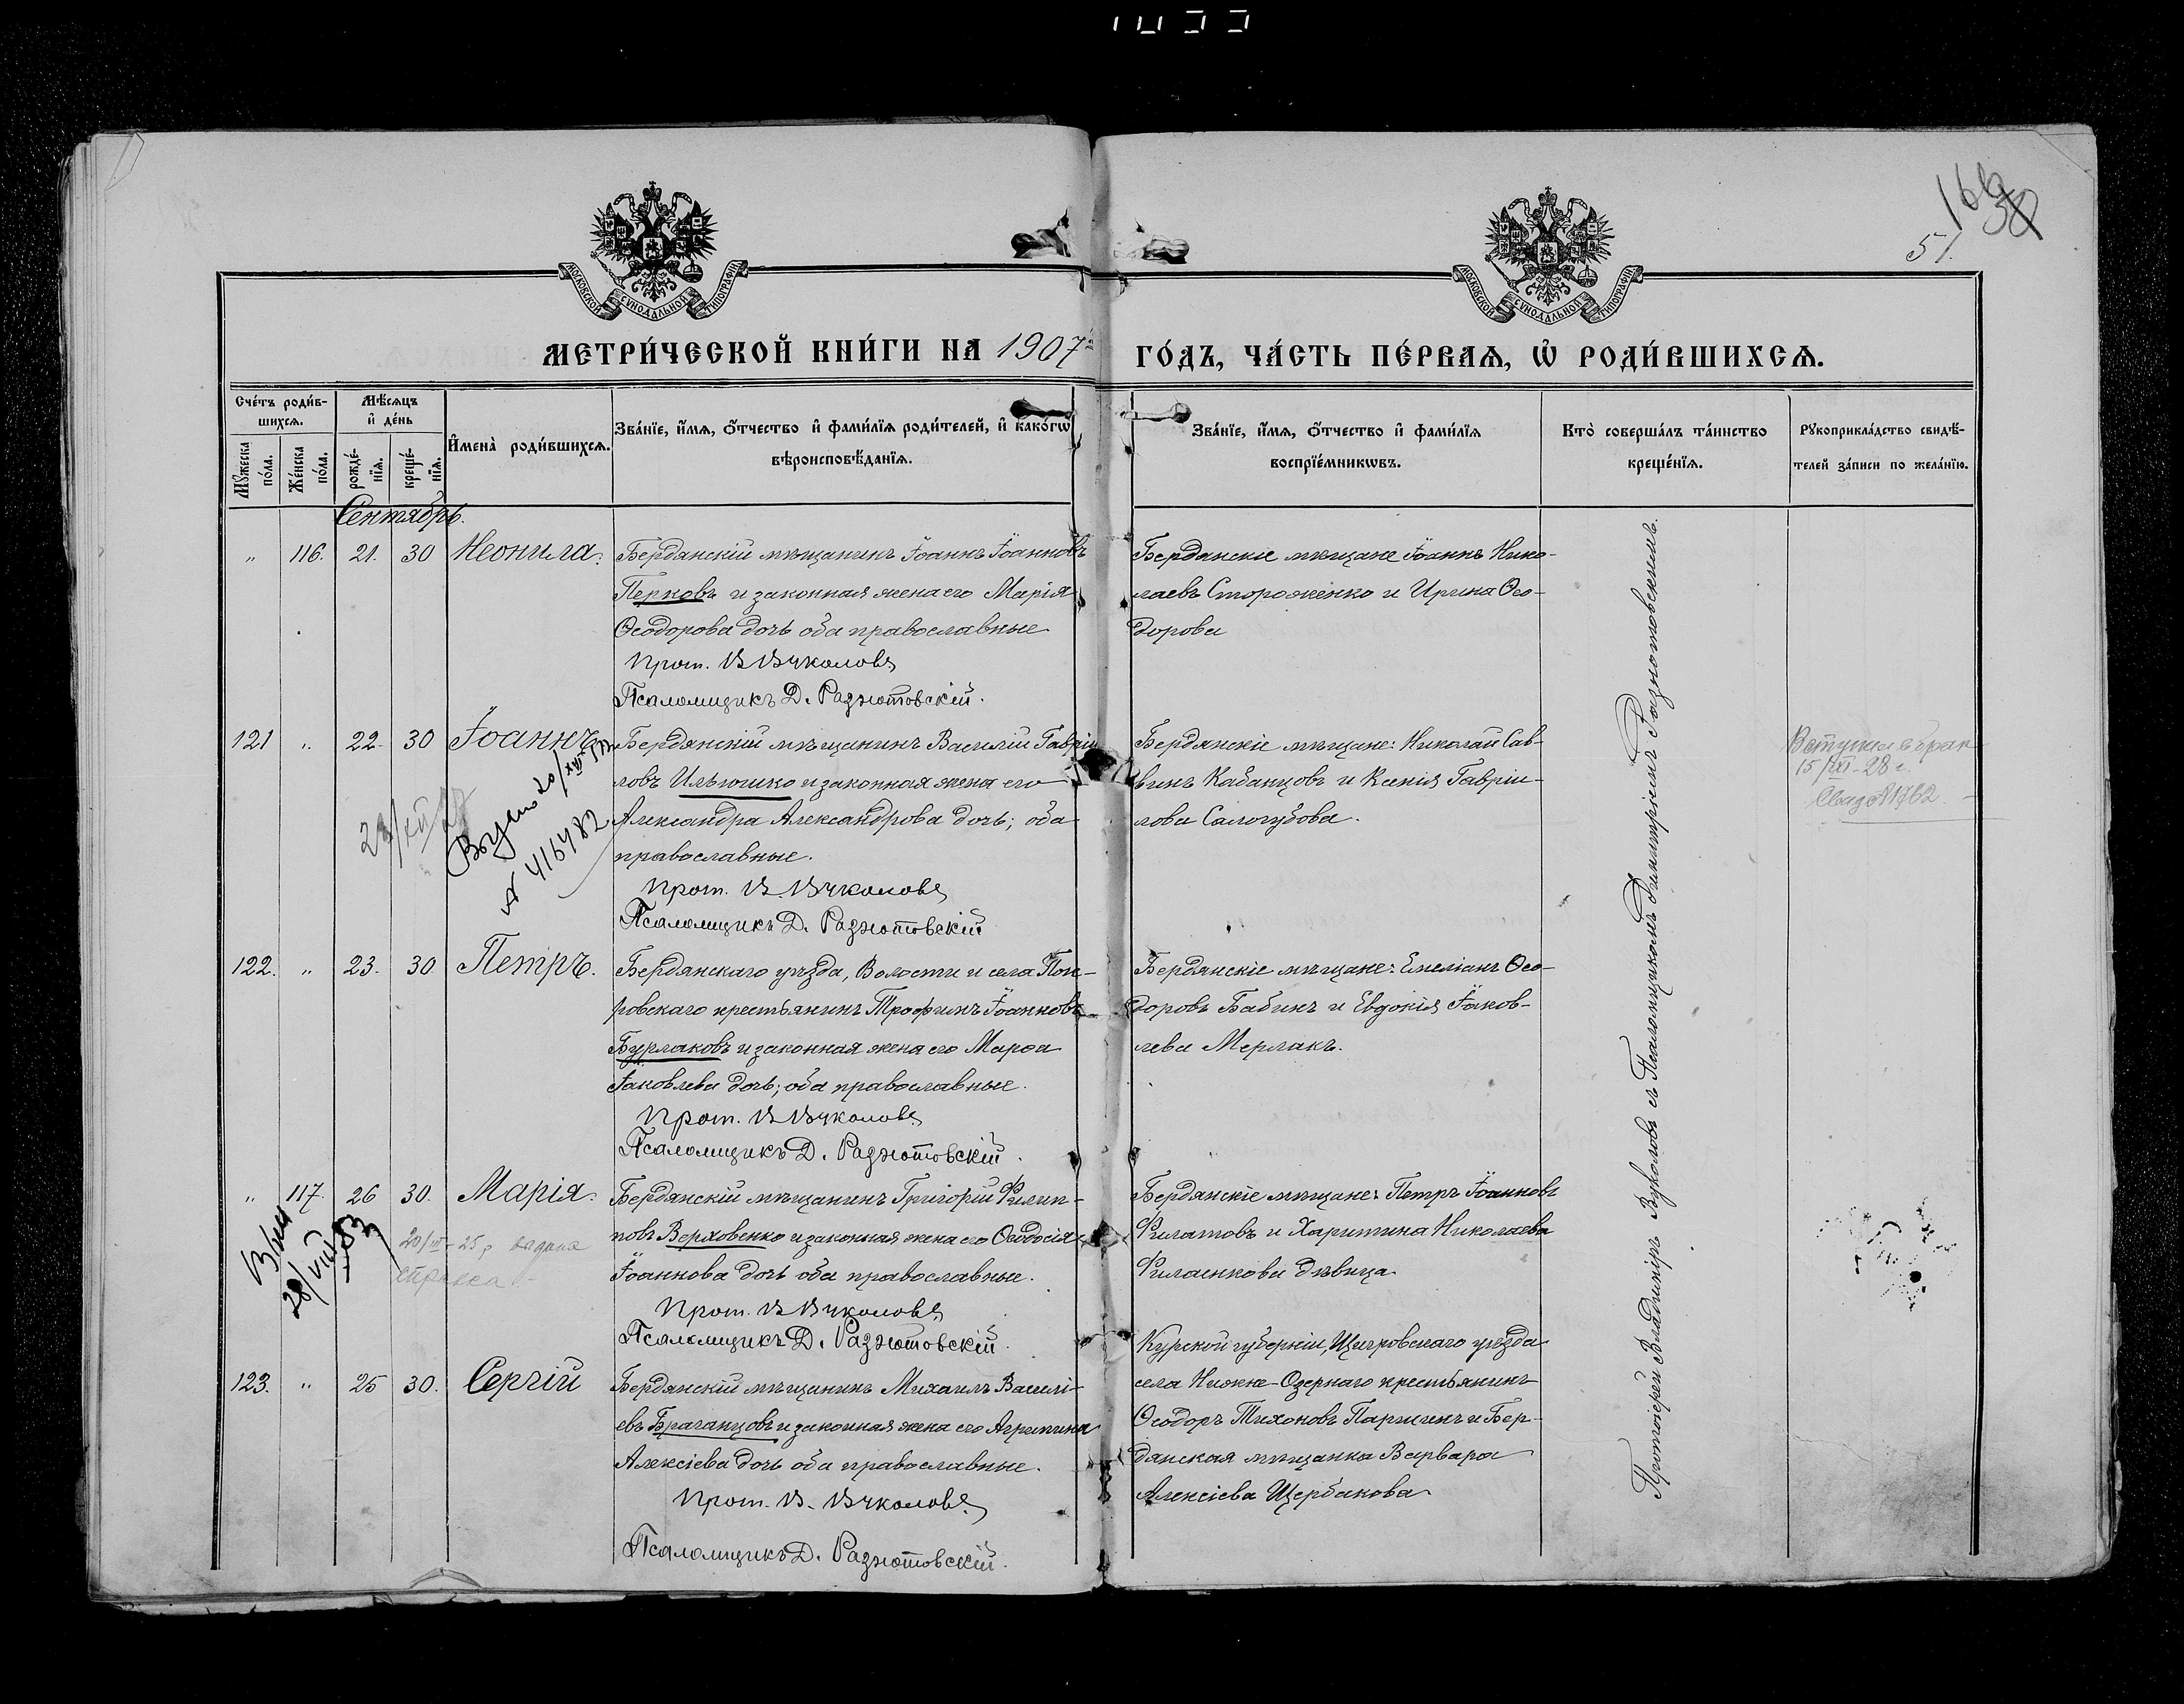 166
51.
МОСКОВСКОЙ СѴНОДАЛЬНОЙ ТИПОГРАФІИ
МОСКОВСКОЙ СѴНОДАЛЬНОЙ ТИПОГРАФІИ
МЕТРИ́ЧЕСКОЙ КНИ́ГИ НА 1907
ГО́ДЪ, ЧА́СТЬ ПЕ́РВАѦ, Ѡ҆ РОДИ́ВШИХСѦ.
Сче́тъ роди́в-
шихсѧ.
Мꙋ́жеска по́ла.
Же́нска по́ла.
Мѣ́сѧцъ
и҆ де́нь
рожде́-
нїѧ.
креще́-
нїѧ.
И҆мена̀ роди́вшихсѧ.
Зва́нїе, и҆́мѧ, ѻ҆́тчество и҆ фами́лїѧ роди́телей, и҆ како́гѡ
вѣроисповѣ́данїѧ.
Зва́нїе, и҆́мѧ, ѻ҆́тчество и҆ фами́лїѧ
воспрїе́мникѡвъ.
Кто̀ соверша́лъ та́инство
креще́нїѧ.
Рꙋкоприкла́дство свидѣ́-
телей за́писи по жела́нїю.
Сентябрь.
" 116. 21. 30 Неонила.
Бердянскій мѣщанинъ Іоаннъ Іоанновъ
Перковъ и законная жена его Марія
Ѳеодорова дочь оба православные
Прот. В Вуколовъ
Псаломщикъ Д. Разнотовскій.
Бердянскіе мѣщане Іоаннъ Нико-
лаевъ Стороженко и Ирина Ѳео-
дорова
121 " 22. 30 Іоаннъ
Бердянскій мѣщанинъ Василій Гаврiи
ловъ Ильюшко и законная жена его
Александра Александрова дочь; оба
православные.
Прот. В. Вуколовъ
Псаломщикъ Д. Разнотовскій
23/XII/27
№ 416482
Бердянскіе мѣщане: Николай Сав-
винъ Кабанцовъ и Ксенія Гавріи-
лова Салогубова.
Вступил в брак
15/XI-28 г.
Свид №1762
122. " 23. 30 Петръ.
Бердянскаго уѣзда, Волости и села Пок-
ровскаго крестьянинъ Трофимъ Іоанновъ
Бурлаковъ и законная жена его Марѳа
Іаковлева дочь; оба православные.
Прот. В Вуколовъ
Псаломщикъ Д. Разнотовскій.
Бердянскіе мѣщане: Емеліанъ Ѳео-
доровъ Бабинъ и Евдокія Іаков-
лева Мерлакъ.
" 117. 26 30. Марія.
Бердянскій мѣщанинъ Григорій Филип-
повъ Верховенко и законная жена его Ѳеодосія
Іоаннова дочь оба православные.
Прот. В Вуколовъ
Псаломщикъ Д. Разнотовскій.
20/III-25 г выдана
Бердянскіе мѣщане: Петръ Іоанновъ
Филатовъ и Харитина Николаева
Филаенкова дѣвица
123. " 25 30. Сергій
Бердянскій мѣщанинъ Михаилъ Василі-
евъ Браганцовъ и законная жена его Агрипина
Алексіева дочь оба православные.
Прот. В. Вуколовъ
Псаломщикъ Д. Разнотовскій.
Курской губерніи, Щигровскаго уѣзда
села Нижне-Озернаго крестьянинъ
Ѳеодоръ Тихоновъ Паршинъ и Бер-
дянская мѣщанка Варвара
Алексіева Щербакова
Протоіерей Владиміръ Вуколовъ съ Псаломщикомъ Димитріемъ Разнотовскимъ.